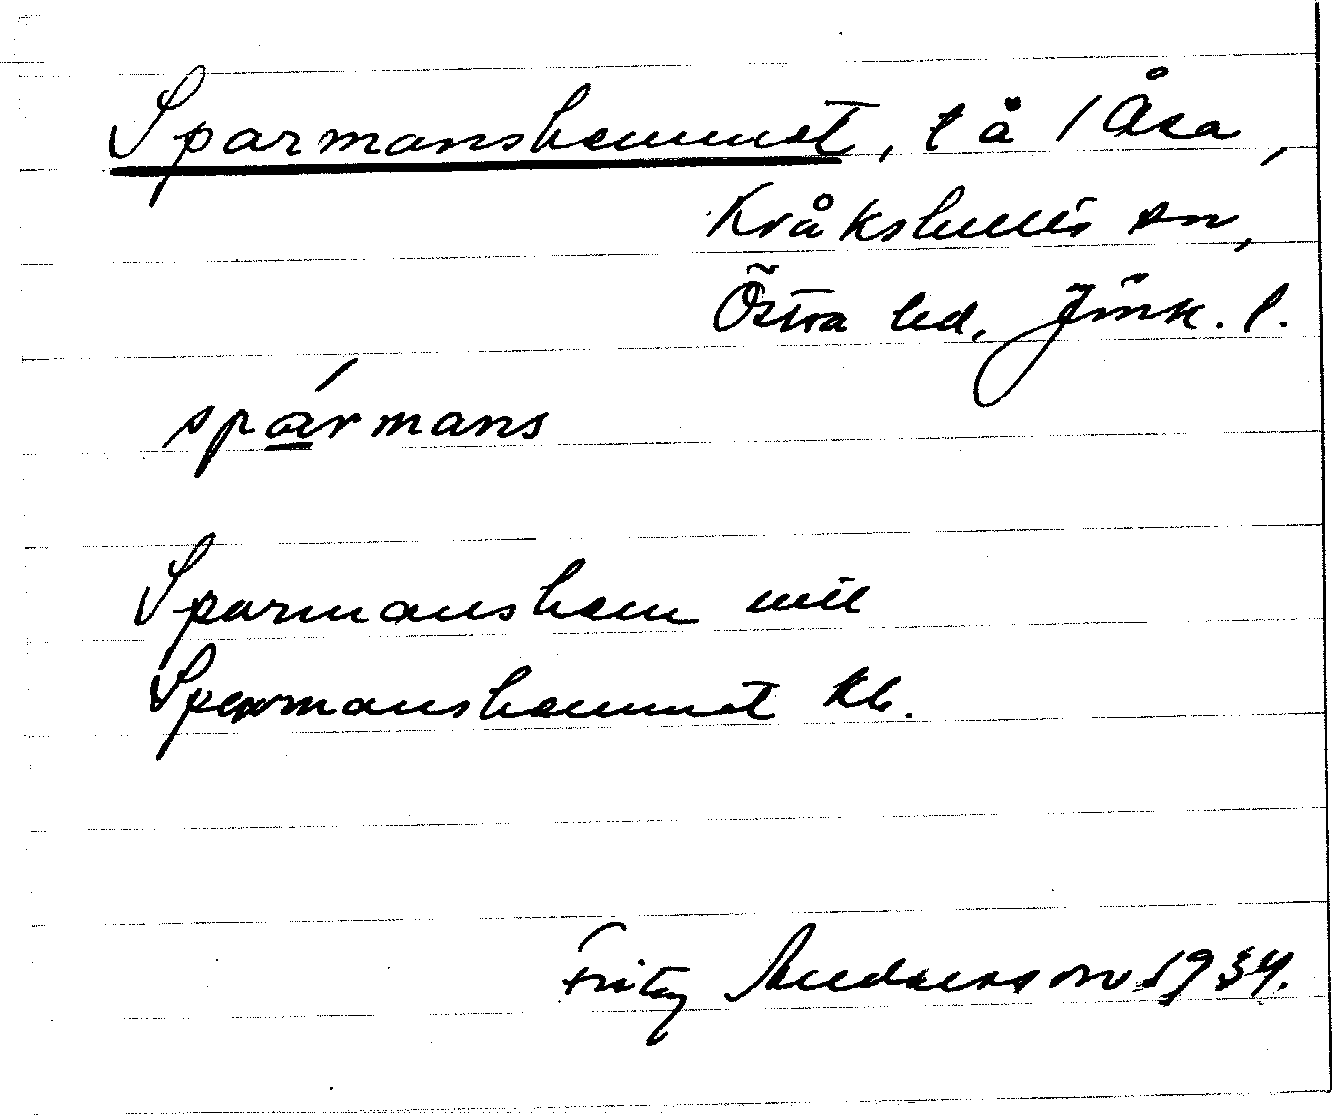 Sparmanshemmet, t å / Åsa,
Kråkshults sn,
Östra hd, Jönk. l.
spármans
Sparmanshem
Sparmanshemmet kb.
Fritz Andersson 1934.